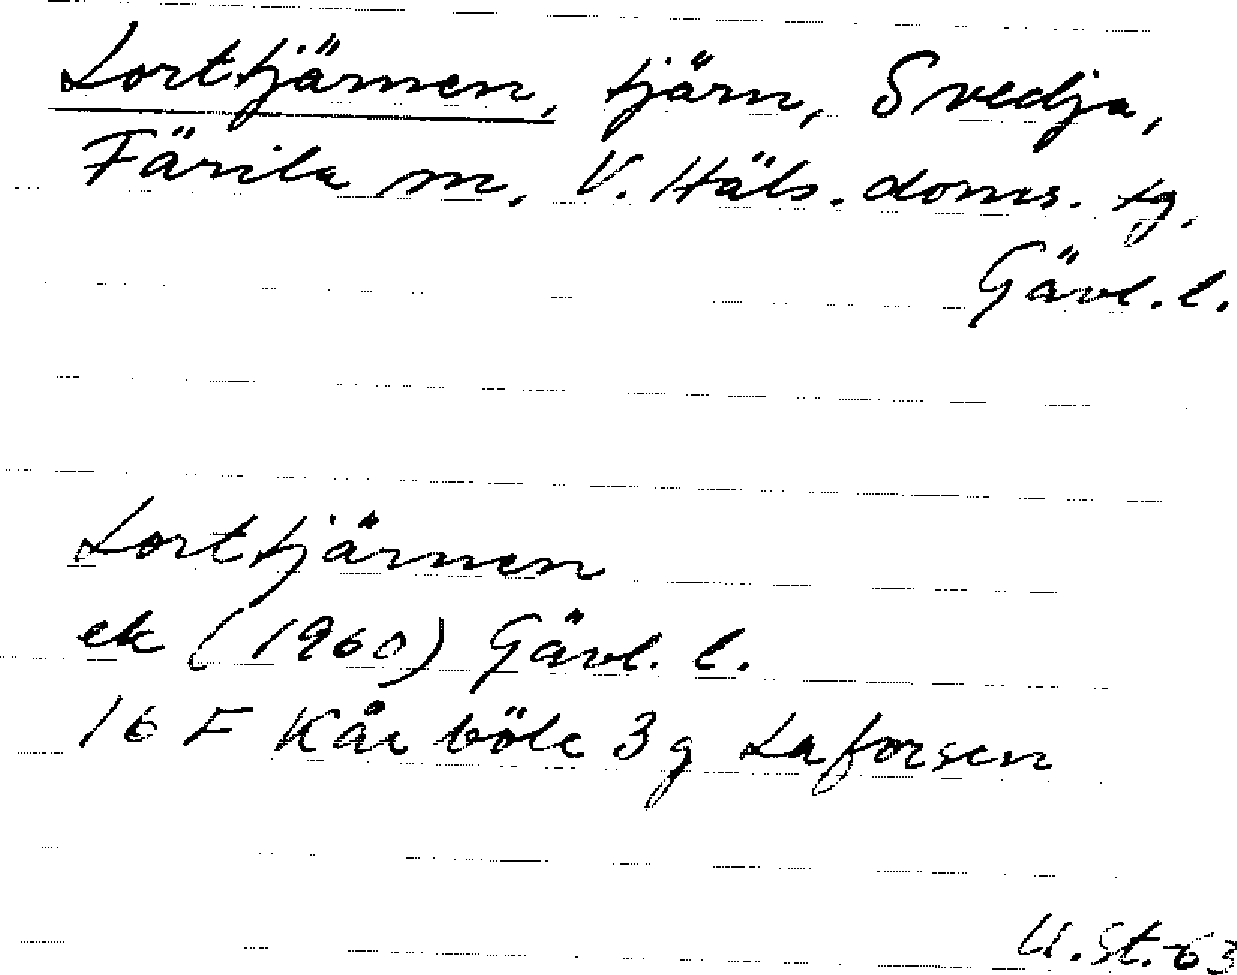 Lorttjärnen, tjärn, Svedja,
Färila sn, V. Häls. doms. tg.
Gävl. l.
Lorttjärnen
ek (1960) Gävl. l.
16 F Kårböle 3 g Laforsen
U.St.-63